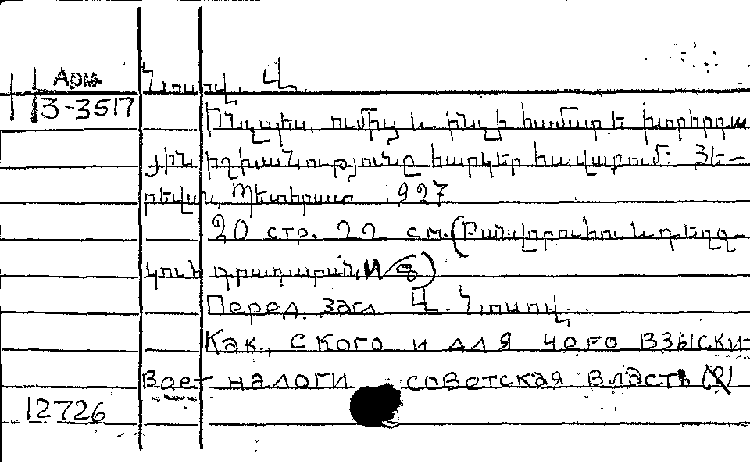 Арм
3-3517
Ինչպես, ումից և ինչի համար է խորհրդա
յին իշխանությունը հարկեր հավաքում: Յե-
րեվան, Պետհրատ 1927
20 стр. 22 см. (Բանվորուհու և գեղջ-
կուհ գրադարան,
Перед загл
Как, с кого и для чего взыски-
вает налоги советская власть
12726